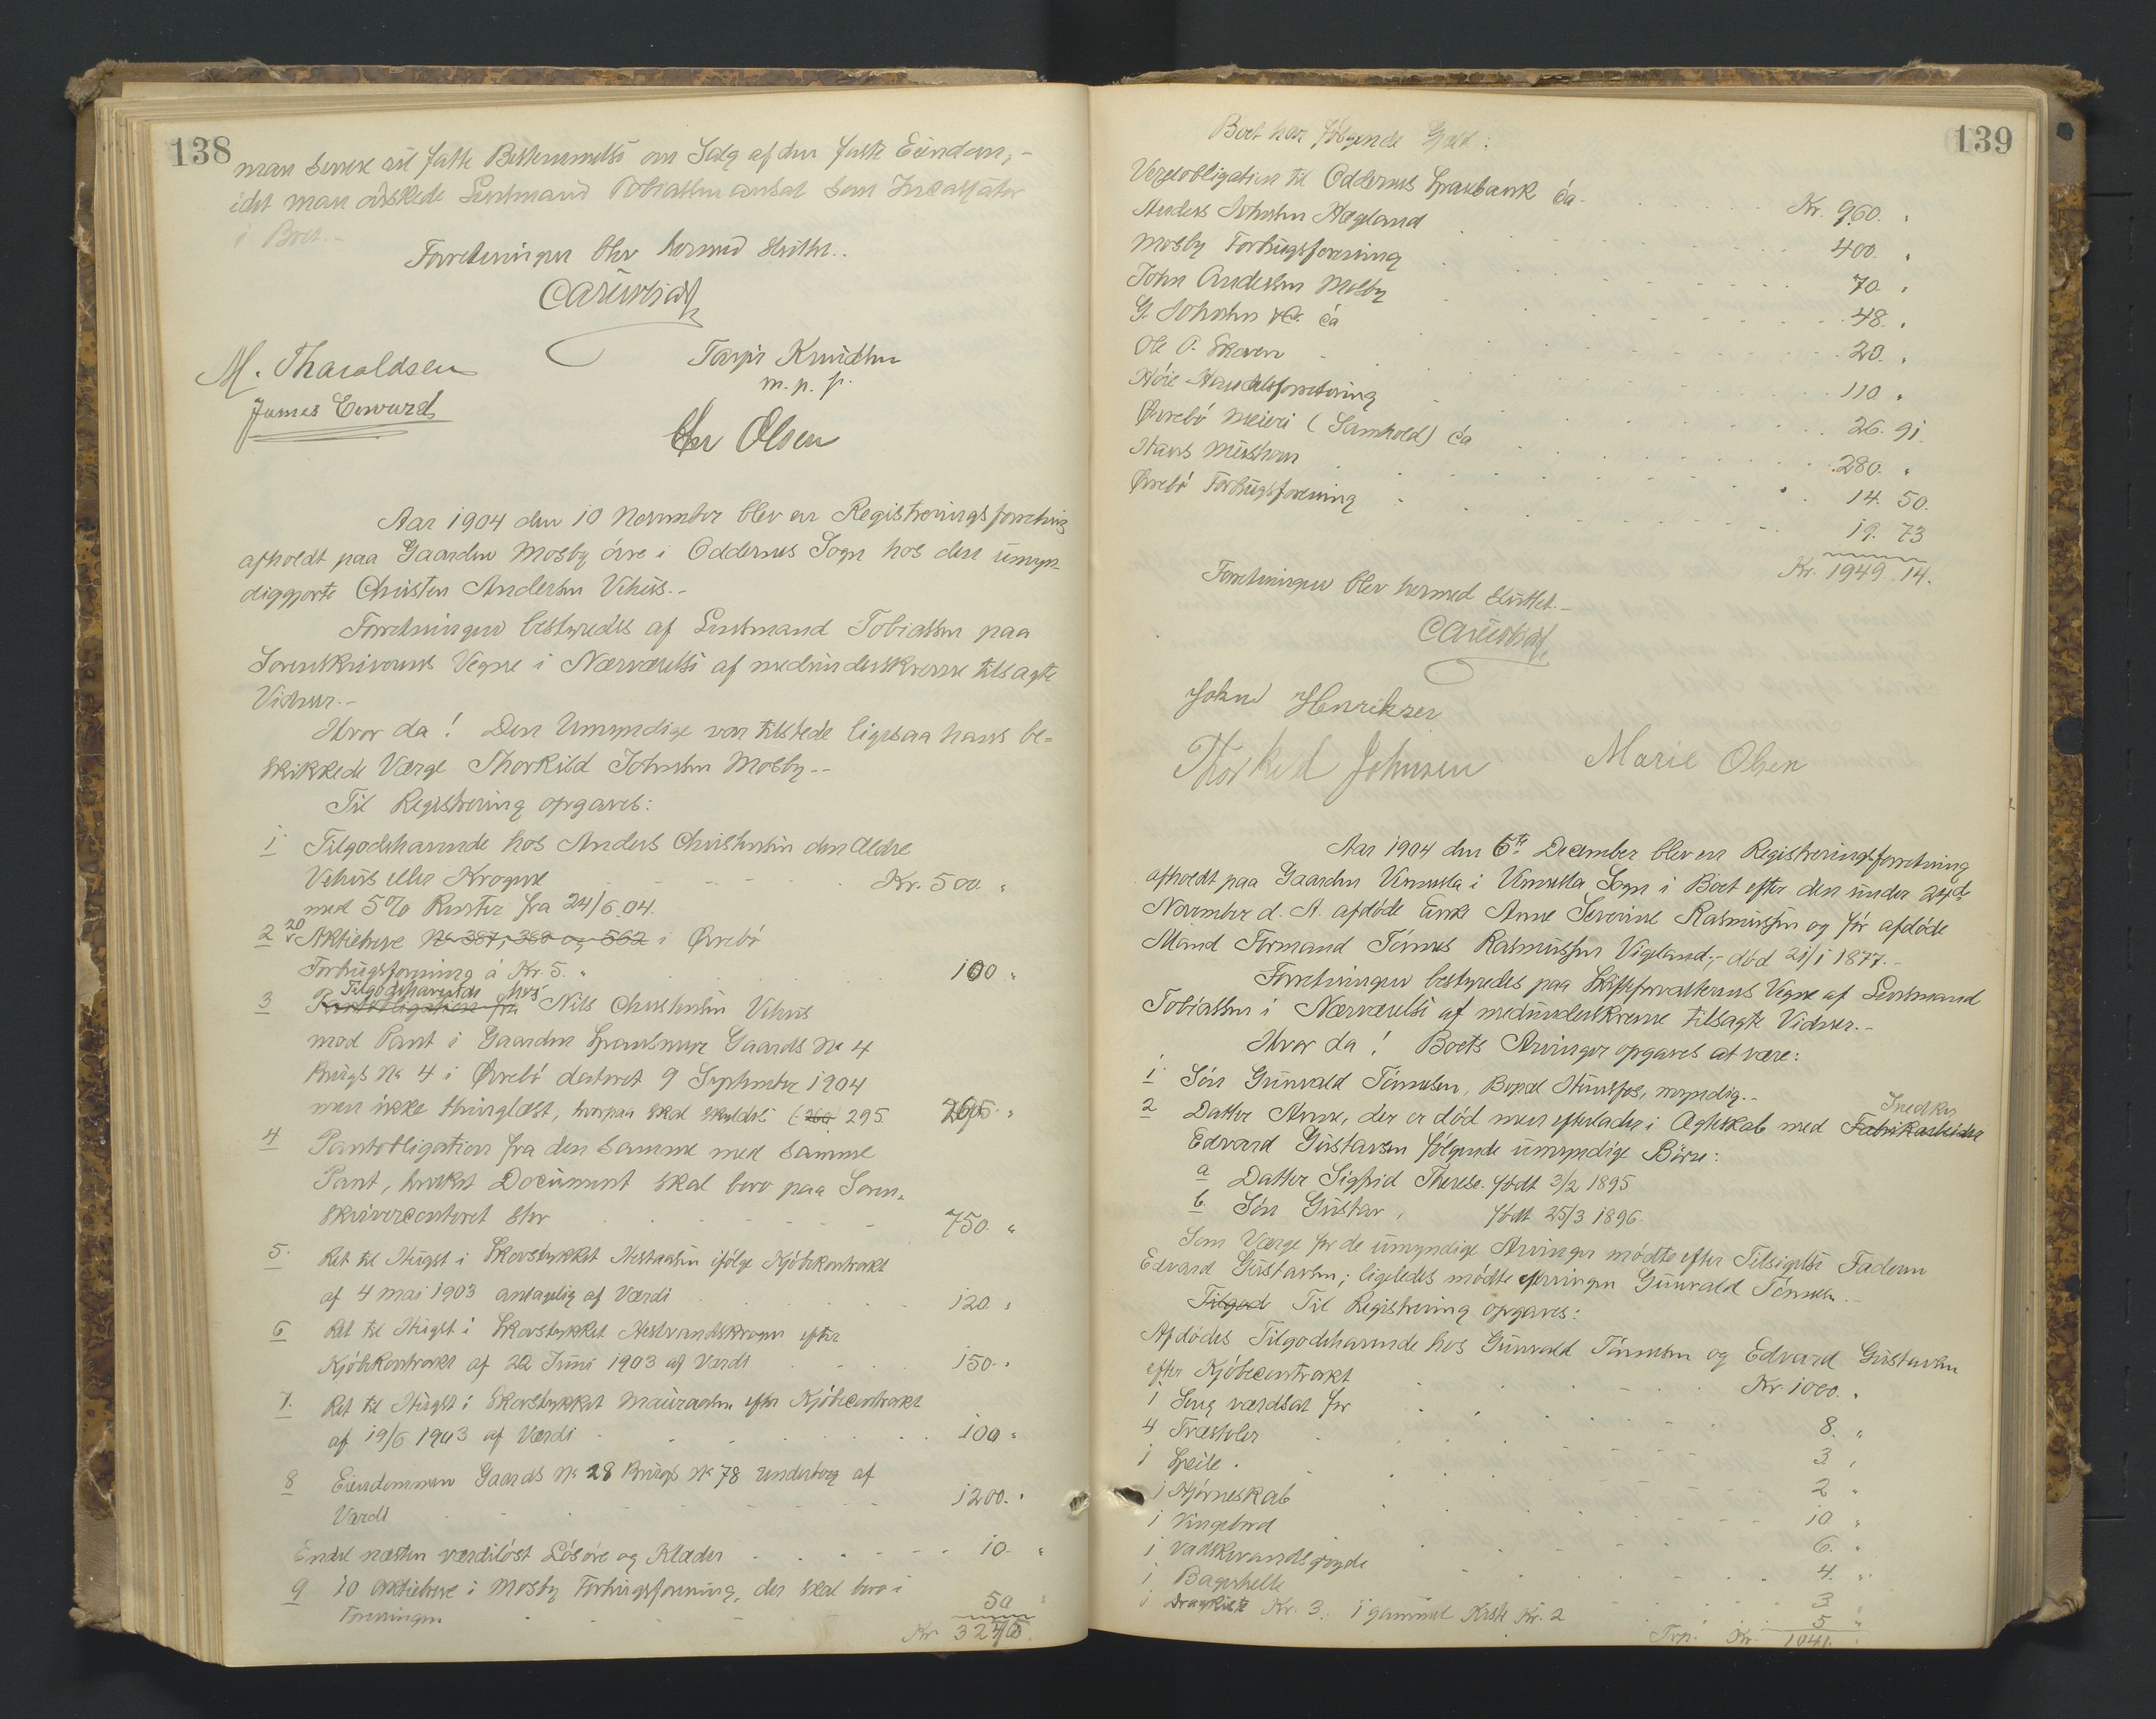 138
man senere vil fatte Bestemmelse om Salg af den faste Eiendom,-
idet man ønskede Lensmand Tobiassen ansat som Incassator
i Boet.-
Forretningen blev hermed sluttet..
M. Tharaldsen
Tarjei Knudsen
m. p. p.
James Edward
Chr Olsen
Aar 1904 den 10 November blev en Registreringsforretning
afholdt paa Gaarden Mosby øvre i Oddernes Sogn hos den umyn-
diggjorte Christen Andersen Vehus.-
Forretningen bestyredes af Lensmand Tobiassen paa
Sorenskriverens Vegne i Nærværelse af medunderskrevne tilsagte
Vidner.-
Hvor da! Den Umyndige var tilstede ligesaa hans be-
skikkede Værge Thorkild Johnsen Mosby.-
Til Registrering opgaves:
1 Tilgodehavende hos Anders Christensen den Ældre
Vehus eller Krogene Kr. 500. "
med 5% Renter fra 24/6 04.
2 20 Aktiebreve No 387, 388 og 562 i Øvrebø
Forbrugsforening á Kr. 5. " 100 "
Tilgodehavende hos
3 Pantobligation fra Nils Christensen Vehus
mod Pant i Gaarden Gaards No 4
Brugs No 4 i Øvrebø dateret 9 September 1904
men ikke thinglæst, hvorpaa skal skyldes (260 295 295. "
4 Pantobligation fra den samme med samme
Pant, hvilket Document skal bero paa Soren-
skrivercontoret stor 750. "
5. Ret til Hugst i Skovstykket Hestaasen ifølge Kjøbekontrakt
af 4 mai 1903 antagelig af Værdi 120. "
6 Ret til Hugst i Skovstykket Hestvandskrogen efter
Kjøbekontrakt af 22 Juni 1903 af Værdi 150. "
7. Ret til Hugst i Skovstykket Mauraasen efter Kjøbecontrakt
af 19/6 1903 af Værdi 100 "
8 Eiendommen Gaards No 28 Brugs No 78 Underberg af
Værdi 1200. "
Endel næsten værdiløst Løsøre og Klæder 10. "
9 10 Aktiebreve i Mosby Forbrugsforening, der skal bero i
Foreningen 50
Kr 3275.
139
Boet har følgende Gjæld:
Vexelobligation til Oddernes Sparebank ca. Kr. 960. "
Anders Johnsen Hægeland 400. "
Mosby Forbrugsforening 70. "
John Andersen Mosby 48. "
G. Johnsen & Co. ca 20. "
Ole O. Skoven 110 "
Høie Handelsforretning 26. 91.
Øvrebø Meieri (Samhold) ca 280. "
Hans Messhom 14. 50.
Øvrebø Forbrugsforening 19. 73
Kr. 1949. 14.
Forretningen blev hermed sluttet.-
John Henriksen
Thorkild Johnsen
Marie Olsen
Aar 1904 den 6te December blev en Registreringsforretning
afholdt paa Gaarden Vennesla i Vennesla Sogn i Boet efter den under
November d. A. afdøde Enke Anne Severine Rasmussen og før afdøde
Mand Formand Tønnes Rasmussen Vigeland,- død 21/1 1877.-
Forretningen bestyredes paa Skifteforvalterens Vegne af Lensmand
Tobiassen i Nærværelse af medunderskrevne tilsagte Vidner.-
Hvor da! Boets Arvinger opgaves at være:
1 Søn Gunvald Tønnesen, Bopæl Hunsfos, myndig.-
Snedker
2 Datter Anne, der er død men efterlader i Ægteskab med Fabrikarbeider
Edvard Gustavsen følgende umyndige Børn:
a Datter Sigfrid Therese. født 3/2 1895
b Søn Gustav, født 25/3 1896.
Som Værge for de umyndige Arvinger mødte efter Tilsigelse Faderen
Edvard Gustavsen; ligeledes mødte Arvingen Gunvald Tønnesen.-
Tilgod Til Registrering opgaves:
Afdødes Tilgodehavende hos Gunvald Tønnesen og Edvard Gustavsen
efter Kjøbecontrakt Kr. 1000. "
1 Seng værdsat for 8. "
4 Træstoler 3 "
1 Speile. 2 "
1 Hjørneskab 10 "
1 Vingebord 6. "
1 Vadskevandsgryde 4. "
1 Bagerhelle 3 "
1 Dragkiste Kr. 3. 1 gammel Kiste Kr. 2 5 "
Trp. Kr. 1041.